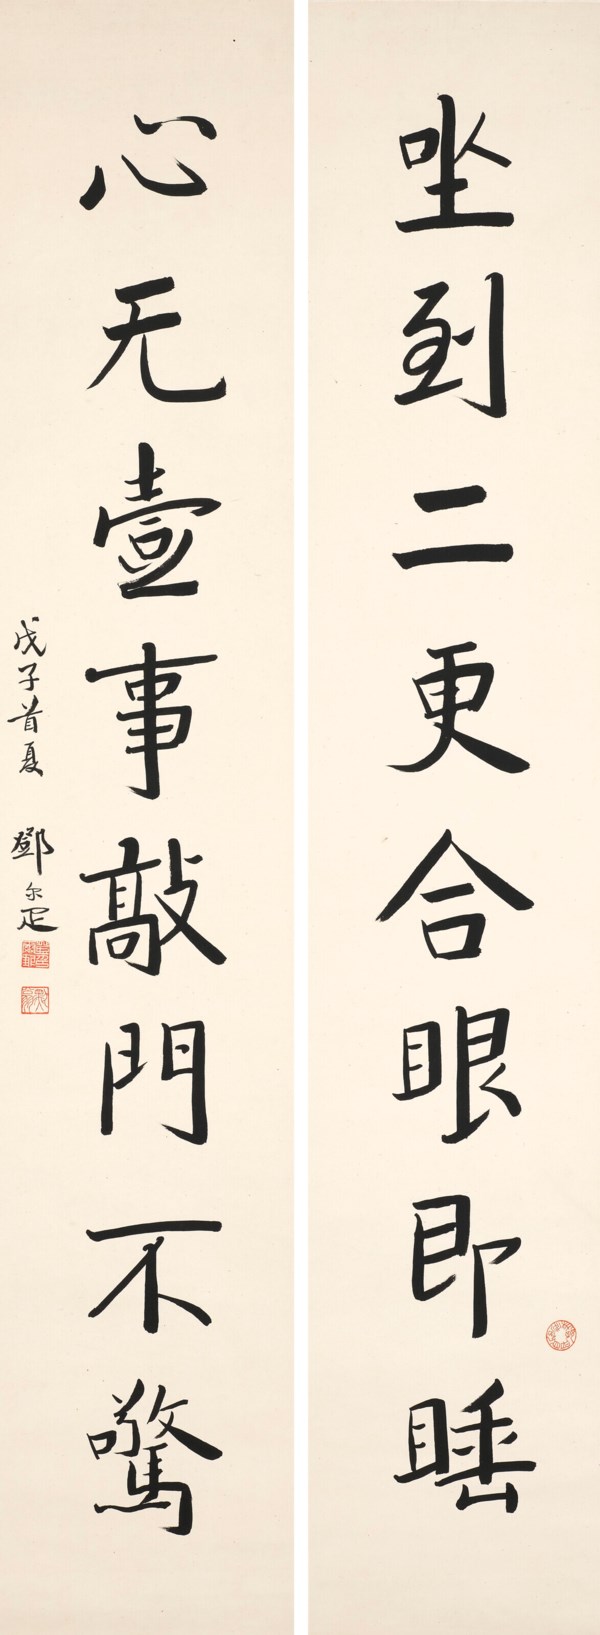 坐到二更合眼即睡
心无壹事敲門不驚
戊子首夏 鄧尔疋